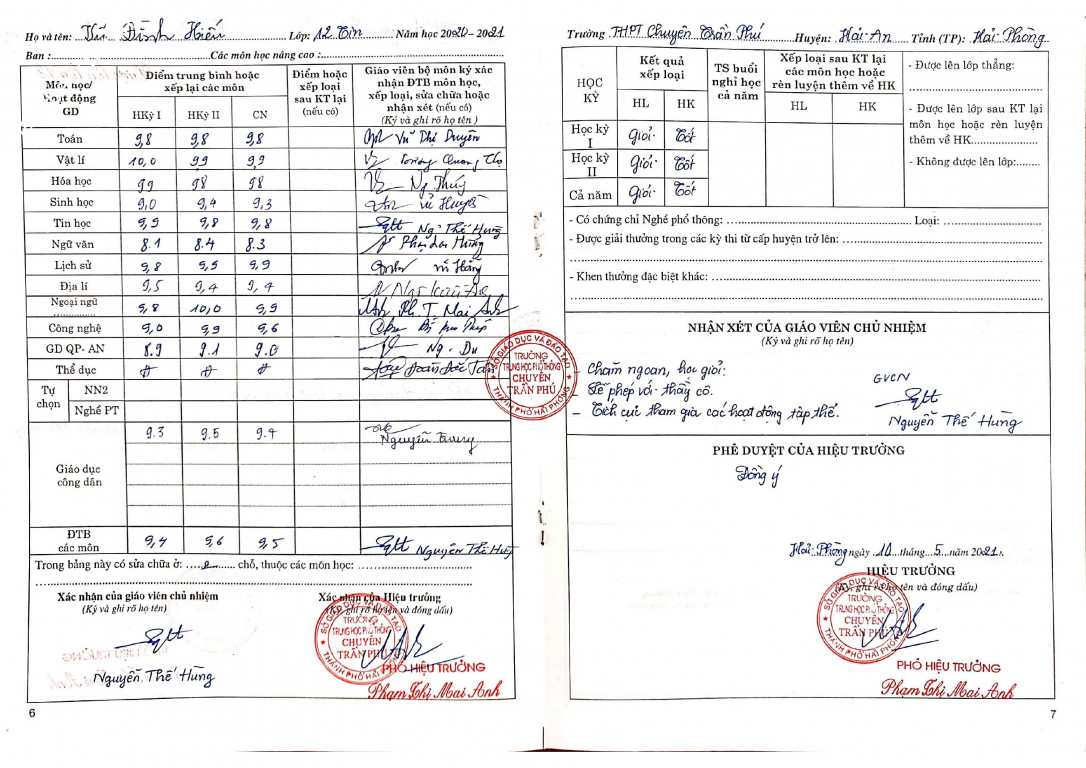 Họ và tên: Vũ Đình Hiếu Lớp: 12 Tin Năm học 2020-2021
Ban: Các môn học nâng cao:
Môn học/ Hoạt động GD
Điểm trung bình hoặc xếp lại các môn
HKỳ I HKỳ II CN
Điểm hoặc xếp loại sau KT lại (nếu có)
Giáo viên bộ môn ký xác nhận ĐTB môn học, xếp loại, sửa chữa hoặc nhận xét (nếu có)
(Ký và ghi rõ họ tên)
Toán 9,8 9,8 9,8 Vũ Thị Duyên
Vật lí 10,0 99 9,9 Quang Thọ
Hóa học 99 98 98 Ng. Thúy
Sinh học 9,0 9,4 9,3 Vũ Huyền
Tin học 9,9 9,8 9,8 Ng. Thế Hưng
Ngữ văn 8.1 8.4 8.3
Lịch sử 9,8 9,9 9,9
Địa lí 9,5 9,4 9,4
Ngoại ngữ 9,8 10,0 9,9 Ph. T. Mai Anh
Công nghệ 9,0 99 9,6
GD QP- AN 8.9 9.1 9.0 Ng. Du
Thể dục Đ Đ Đ
Tự chọn NN2
Nghề PT
9.3 9.5 9.4 Nguyễn
Giáo dục công dân
ĐTB các môn 9,4 9,6 9,5 Nguyễn Thế Hưng
Trong bảng này có sửa chữa ở: chỗ, thuộc các môn học:
Xác nhận của giáo viên chủ nhiệm
(Ký và ghi rõ họ tên)
Nguyễn Thế Hưng
Xác nhận của Hiệu trưởng
(Ký, ghi rõ họ tên và đóng dấu)
SỞ GIÁO DỤC VÀ ĐÀO TẠO
TRƯỜNG
TRUNG HỌC PHỔ THÔNG
CHUYÊN
TRẦN PHÚ
THÀNH PHỐ HẢI PHÒNG
PHÓ HIỆU TRƯỞNG
Phạm Thị Mai Anh
6
Trường THPT Chuyên Trần Phú Huyện: Hải An Tỉnh (TP): Hải Phòng
HỌC KỲ
Kết quả xếp loại
HL HK
TS buổi nghỉ học cả năm
Xếp loại sau KT lại các môn học hoặc rèn luyện thêm về HK
HL HK
Học kỳ I Giỏi Tốt
Học kỳ II Giỏi Tốt
Cả năm Giỏi Tốt
- Được lên lớp thẳng:
- Được lên lớp sau KT lại môn học hoặc rèn luyện thêm về HK
- Không được lên lớp:
- Có chứng chỉ Nghề phổ thông: Loại:
- Được giải thưởng trong các kỳ thi từ cấp huyện trở lên:
- Khen thưởng đặc biệt khác:
NHẬN XÉT CỦA GIÁO VIÊN CHỦ NHIỆM
(Ký và ghi rõ họ tên)
- Chăm ngoan, học giỏi.
- Lễ phép với thầy cô.
- Tích cực tham gia các hoạt động tập thể.
GVCN
Nguyễn Thế Hưng
SỞ GIÁO DỤC VÀ ĐÀO TẠO
TRƯỜNG
TRUNG HỌC PHỔ THÔNG
CHUYÊN
TRẦN PHÚ
THÀNH PHỐ HẢI PHÒNG
PHÊ DUYỆT CỦA HIỆU TRƯỞNG
Đồng ý
Hải Phòng ngày 10 tháng 5 năm 2021.
HIỆU TRƯỞNG
(Ký, ghi rõ họ tên và đóng dấu)
SỞ GIÁO DỤC VÀ ĐÀO TẠO
TRƯỜNG
TRUNG HỌC PHỔ THÔNG
CHUYÊN
TRẦN PHÚ
THÀNH PHỐ HẢI PHÒNG
PHÓ HIỆU TRƯỞNG
Phạm Thị Mai Anh
7